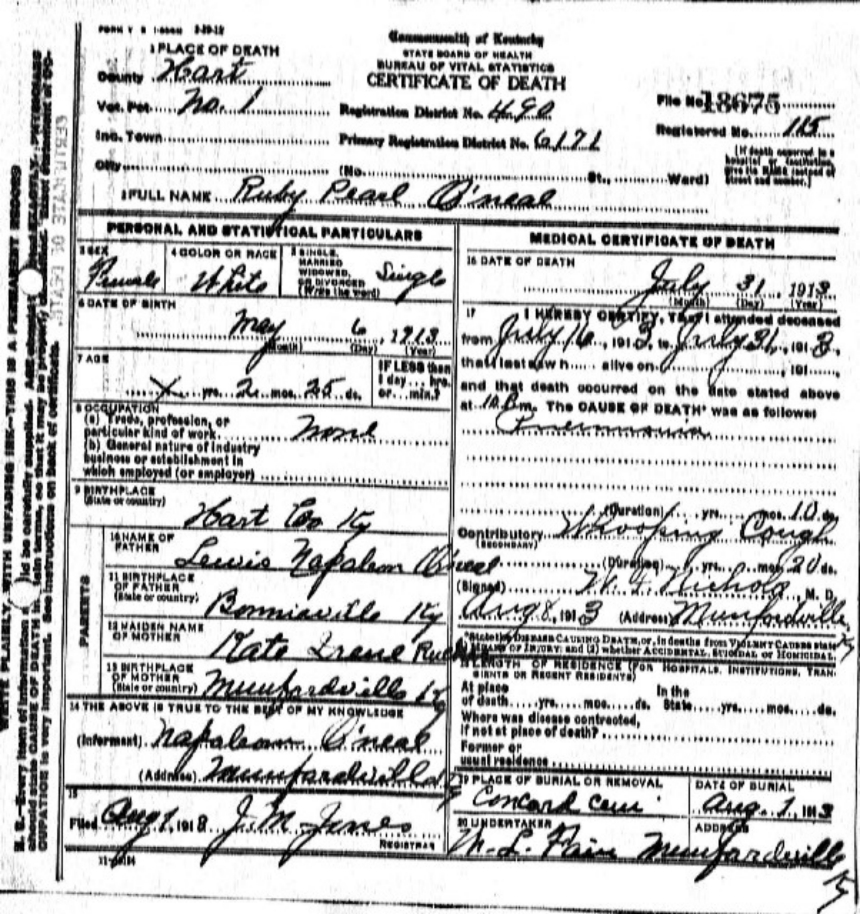 Commonwealth of Kentucky
STATE BOARD OF HEALTH
BUREAU OF VITAL STATISTICS
CERTIFICATE OF DEATH
1 PLACE OF DEATH
County Hart
Vot. Pct. No. 1
Inc. Town
City
Registration District No. 490
Primary Registration District No. 6171
(No. St., Ward)
File No. 18675
Registered No. 115
[If death occurred in a
hospital or institution,
give its NAME instead of
street and number.]
2 FULL NAME Ruby Pearl O'neal
PERSONAL AND STATISTICAL PARTICULARS
3 SEX
Female
4 COLOR OR RACE
White
5 SINGLE,
MARRIED
WIDOWED,
OR DIVORCED
(Write the word)
Single
6 DATE OF BIRTH
May 6, 1913
(Month) (Day) (Year)
7 AGE
x yrs. 2 mos. 25 ds.
IF LESS than
1 day... hrs.
or... min.?
8 OCCUPATION
(a) Trade, profession, or
particular kind of work None
(b) General nature of industry
business or establishment in
which employed (or employer)
9 BIRTHPLACE
(State or country)
Hart Co Ky
PARENTS
10 NAME OF
FATHER
Lewis Napoleon O'neal
11 BIRTHPLACE
OF FATHER
(State or country)
Bonnieville Ky
12 MAIDEN NAME
OF MOTHER
Kate Irene
13 BIRTHPLACE
OF MOTHER
(State or country)
Munfordville Ky
14 THE ABOVE IS TRUE TO THE BEST OF MY KNOWLEDGE
(Informant) Napoleon O'neal
(Address) Munfordville Ky
15
Filed Aug 1, 1913 J. M. Jones
REGISTRAR
MEDICAL CERTIFICATE OF DEATH
16 DATE OF DEATH
July 31, 1913
(Month) (Day) (Year)
17 I HEREBY CERTIFY, THAT I attended deceased
from July 16, 1913, to July 31, 1913,
that I last saw h alive on , 191
and that death occurred on the date stated above
at m. The CAUSE OF DEATH* was as follows:
Pneumonia
(Duration) yrs. mos. 10 ds.
Contributory Whooping Cough
(SECONDARY)
(Duration) yrs. mos. 20 ds.
(Signed) Nichols, M. D.
Aug 8, 1913 (Address) Munfordville
*State the DISEASE CAUSING DEATH, or, in deaths from VIOLENT CAUSES state
MEANS OF INJURY; and (2) whether ACCIDENTAL, SUICIDAL or HOMICIDAL.
18 LENGTH OF RESIDENCE (FOR HOSPITALS, INSTITUTIONS, TRAN-
SIENTS OR RECENT RESIDENTS)
At place
of death yrs. mos. ds.
In the
State yrs. mos. ds.
Where was disease contracted,
if not at place of death?
Former or
usual residence
19 PLACE OF BURIAL OR REMOVAL
Concord cem.
DATE OF BURIAL
Aug. 1, 1913
20 UNDERTAKER
ADDRESS
Munfordville
Ky